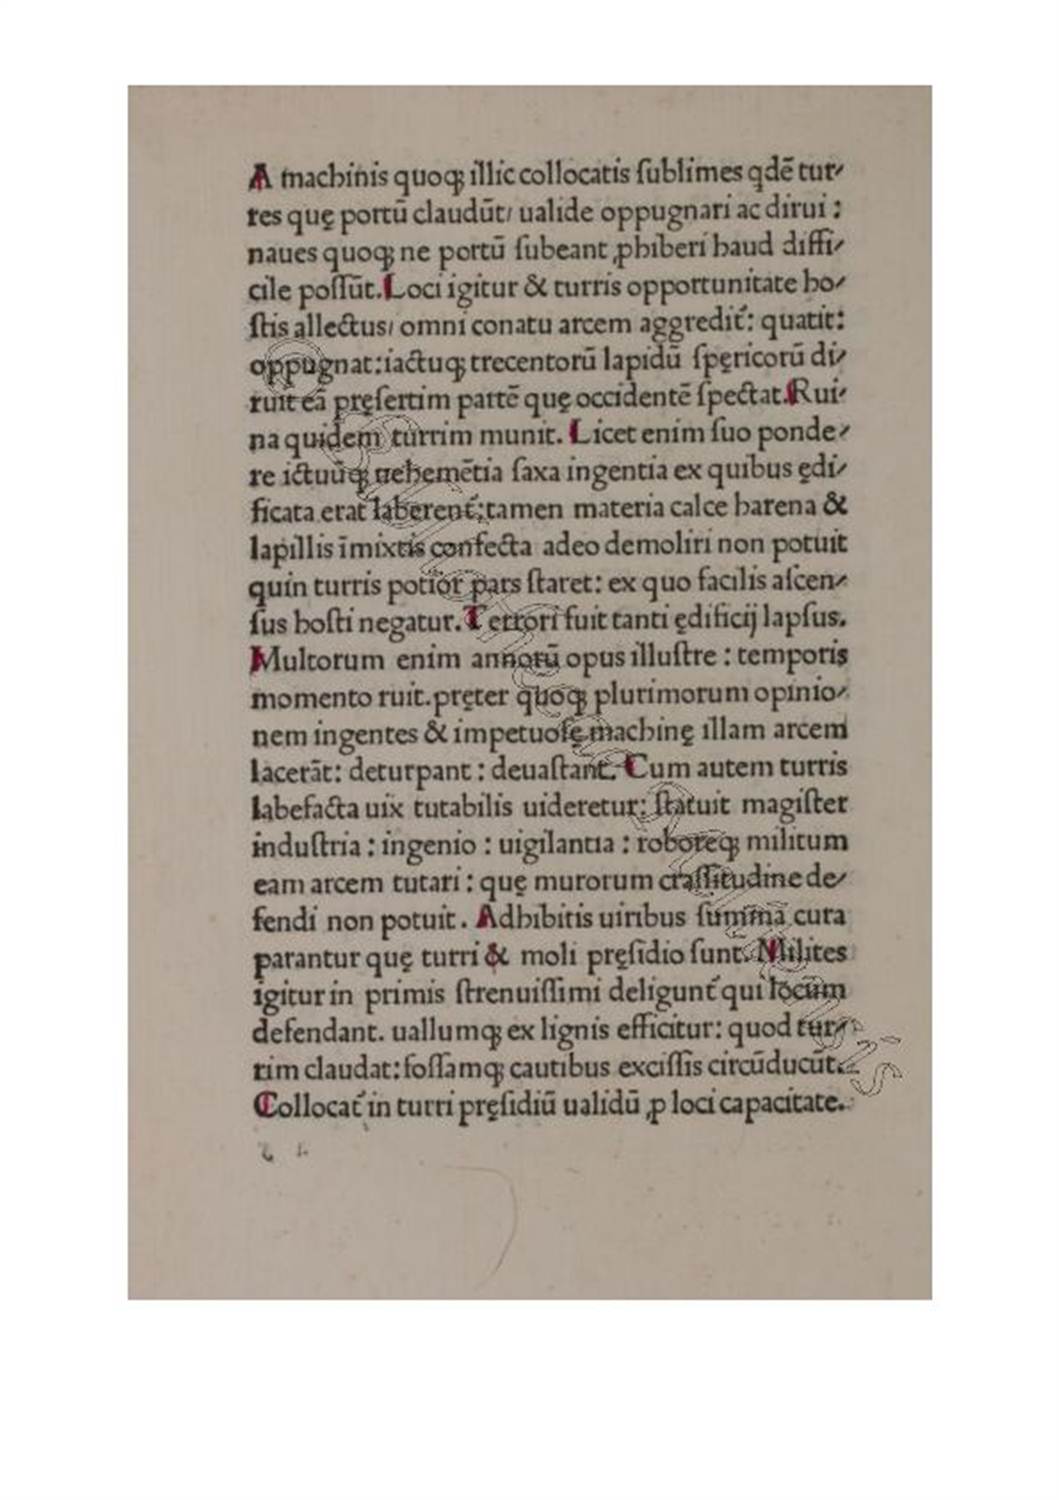 A machinis quoqꝫ illic collocatis ſublimes qdē tur⸗
res quę portū claudūt/ ualide oppugnari ac dirui :
naues quoqꝫ ne portū ſubeant ꝓhiberi haud diffi⸗
cile poſſūt. Loci igitur & turris opportunitate ho⸗
ſtis allectus/ omni conatu arcem aggredit᷑: quatit:
oppugnat: iactuqꝫ trecentorū lapidū ſpęricorū di⸗
ruit eā pręſertim partē quę occidentē ſpectat. Rui⸗
na quidem turrim munit. Licet enim ſuo ponde⸗
re ictuūqꝫ uehemētia ſaxa ingentia ex quibus ędi⸗
ficata erat laberent᷑: tamen materia calce harena &
lapillis īmixtis confecta adeo demoliri non potuit
quin turris potior pars ſtaret: ex quo facilis aſcen⸗
ſus hoſti negatur. Terrori fuit tanti ędificij lapſus.
Multorum enim annorū opus illuſtre : temporis
momento ruit. pręter quoqꝫ plurimorum opinio⸗
nem ingentes & impetuoſę machinę illam arcem
lacerāt: deturpant : deuaſtant. Cum autem turris
labefacta uix tutabilis uideretur: ſtatuit magiſter
induſtria : ingenio : uigilantia : roboreqꝫ militum
eam arcem tutari : quę murorum craſſitudine de⸗
fendi non potuit. Adhibitis uiribus ſumma cura
parantur quę turri & moli pręſidio ſunt. Milites
igitur in primis ſtrenuiſſimi deligunt᷑ qui locum
defendant. uallumqꝫ ex lignis efficitur: quod tur⸗
rim claudat: foſſamqꝫ cautibus exciſſis circūducūt.
Collocat᷑ in turri pręſidiū ualidū ꝓ loci capacitate.